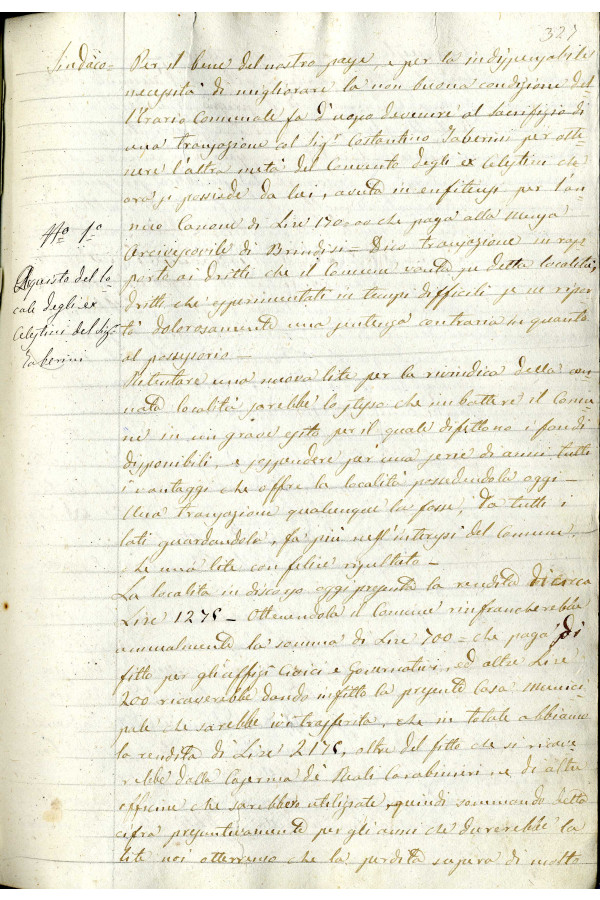 327
Sindaco = Per il bene del nostro paese e per la indispensabile
necessità di migliorare la non buona condizione del
l'Erario Comunale fa d'uopo devenire al sacrifizio di
una transazione col Sigr Costantino Taberini per otte
nere l'altra metà del Convento degli ex Celestini che
ora si possiede da lui, avuta in enfiteusi per l'an
nuo Canone di Lire 170=00 che paga alla Mensa
Arcivescovile di Brindisi = Dico transazione in rap
porto ai dritti che il Comune vanta su detta località,
dritti che esperimentati in tempi difficili se ne ripor
tò dolorosamente una sentenza contraria in quanto
al possessorio —
No 1o
Acquisto del lo
cale degli ex
Celestini del Sigr
Taberini
Intentare una nuova lite per la rivindica della
località sarebbe lo stesso che imbattere il Comu
ne in un grave esito per il quale difettono i fondi
disponibili, e sospendere per una serie di anni tutti
i vantaggi che offre la località possedendola oggi —
Una transazione qualunque la fosse, da tutti i
lati guardandola, fa più nell'interesse del Comune,
che una lite con felice risultato —
La località in discorso oggi presenta la rendita di circa
Lire 1275 — Ottenendola il Comune rinfrancherebbe
annualmente la somma di Lire 700 = che paga di
fitto per gli uffizi Civici e Governativi, ed altre Lire
200 ricaverebbe dando in fitto la presente Casa Munici
pale che sarebbe ivi trasferita, che in totale abbiamo
la rendita di Lire 2175, oltre del fitto che si ricave
rebbe dalla Caserma de' Reali Carabinieri, e di altre
officine che sarebbero utilizzate, quindi sommando detta
cifra presuntivamente per gli anni che durerebbe la
lite noi otterremo che la perdita supera di molto